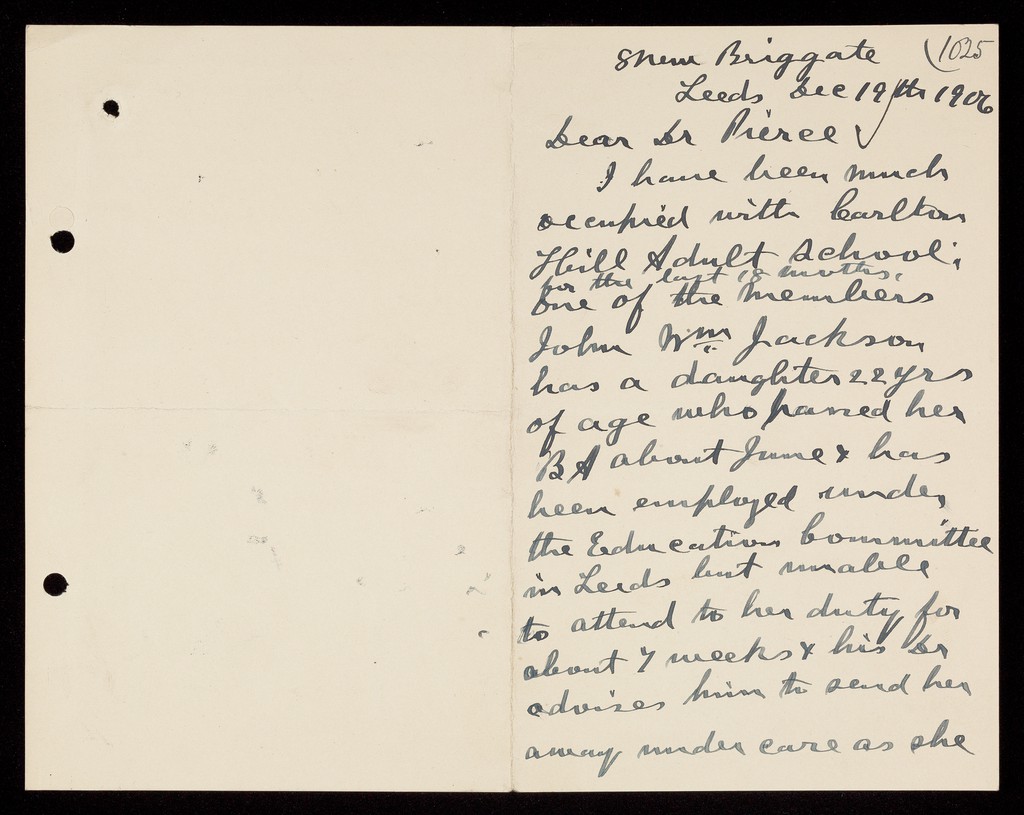 8 New Briggate (1025
Leeds Dec 19th 1906
Dear Dr Pierce
I have been much
occupied with Carlton
Hill Adult School;
for the last 18 moths,
One of the members
John Wm Jackson
has a daughter 22 yrs
of age who passed her
BA about June & has
been employed under
the Education Committee
in Leeds but unable
to attend to her duty for
about 7 weeks & his Dr
advises him to send her
away under care as she